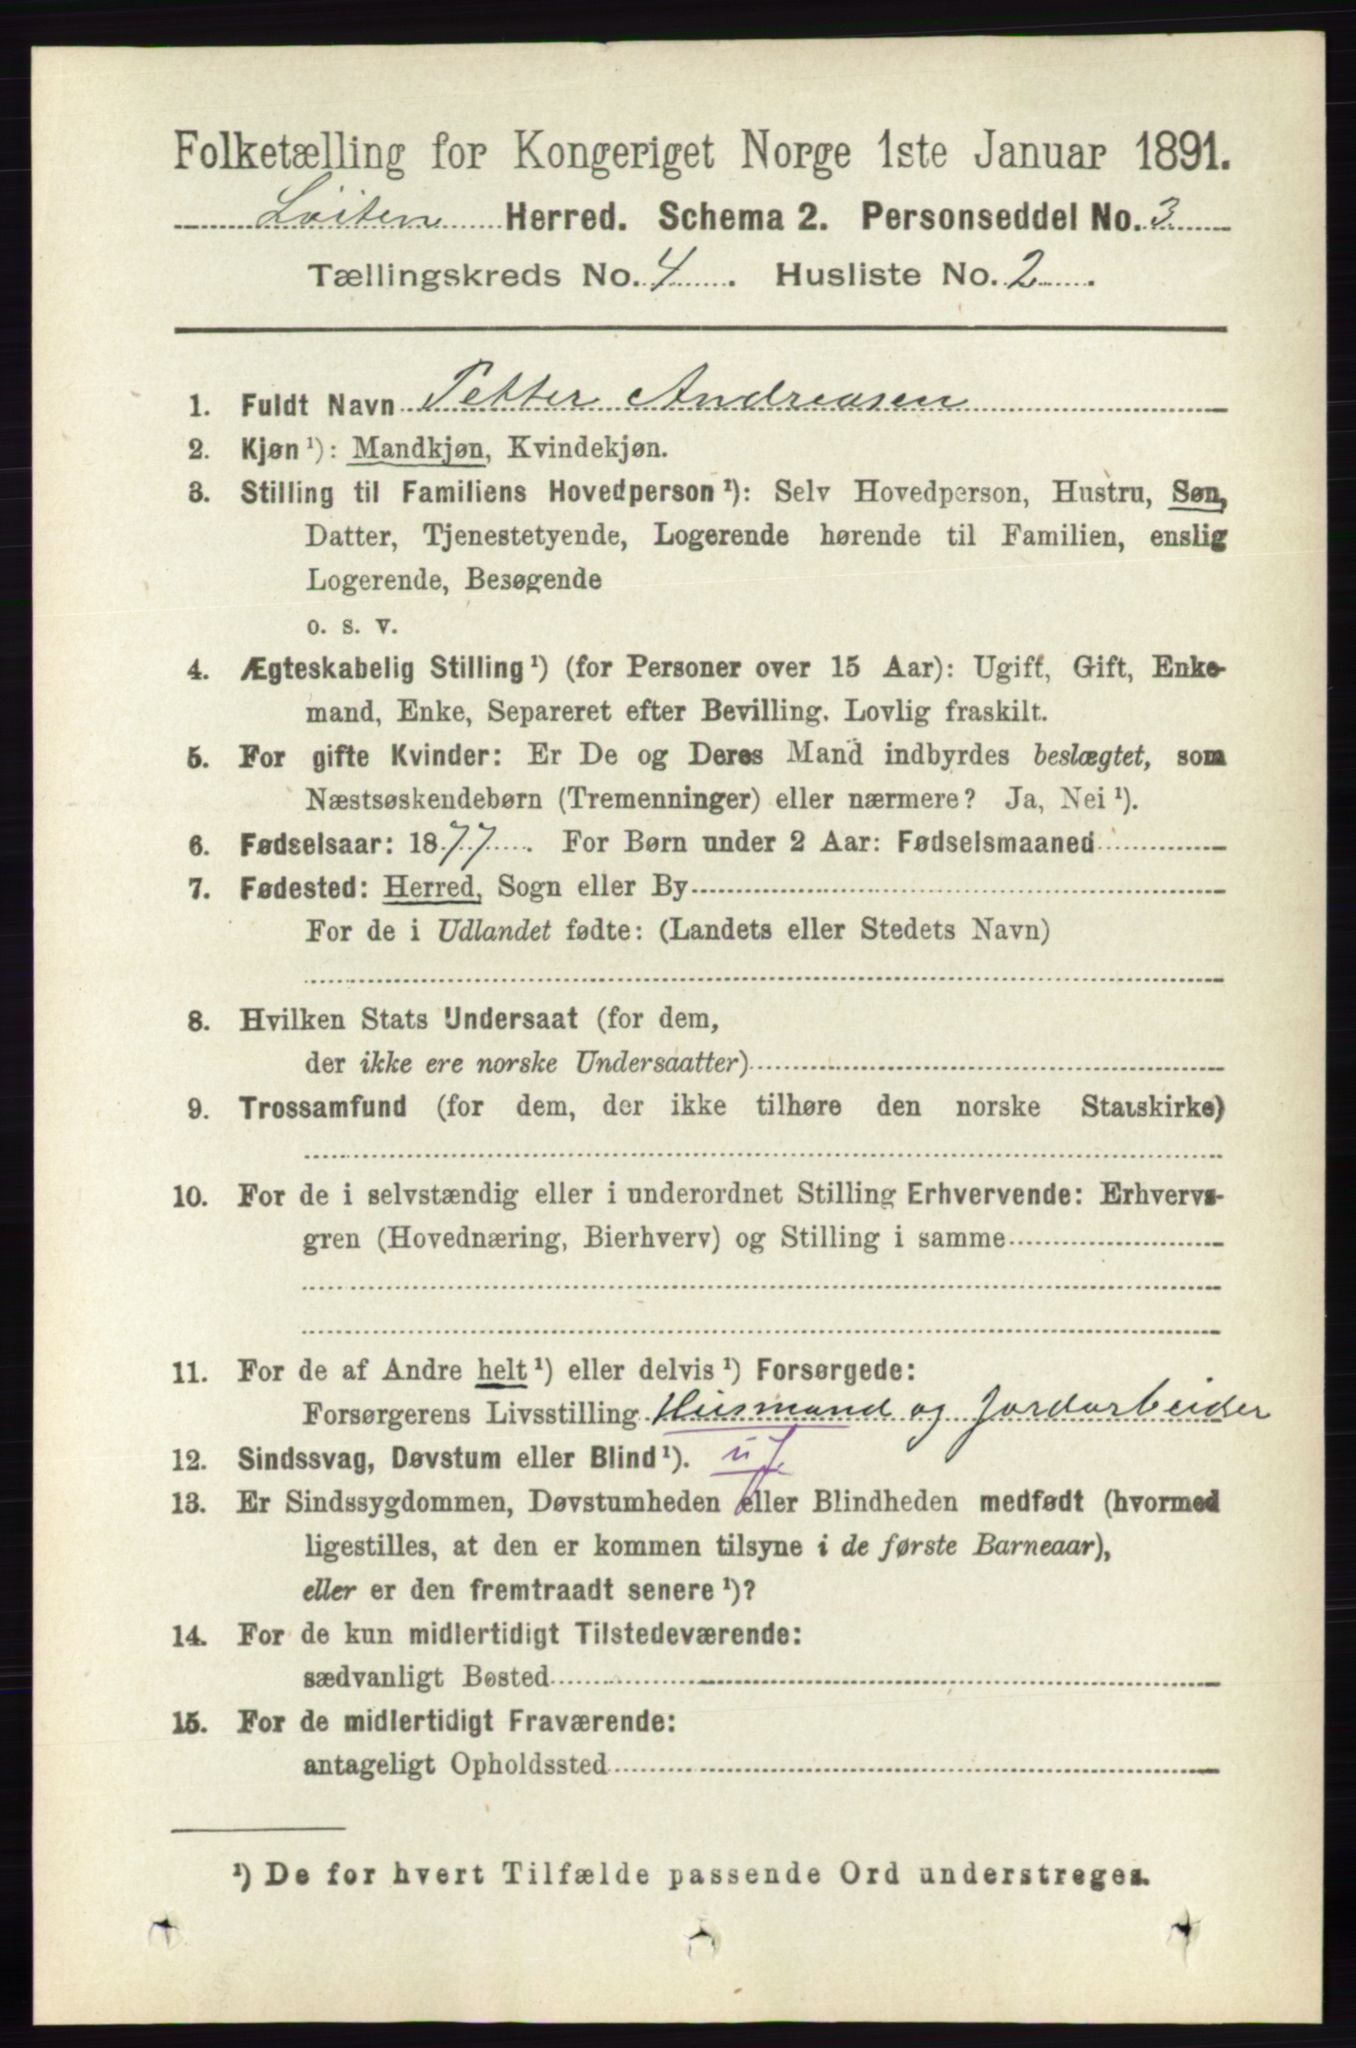 Folketælling for Kongeriget Norge 1ste Januar 1891.
Löiten Herred. Schema 2. Personseddel No. 3
Tællingskreds No. 4. Husliste No. 2.
1. Fuldt Navn Petter Andreasen
2. Kjøn¹): Mandkjøn, Kvindekjøn.
3. Stilling til Familiens Hovedperson¹): Selv Hovedperson, Hustru, Søn,
Datter, Tjenestetyende, Logerende hørende til Familien, enslig
Logerende, Besøgende
o. s. v.
4. Ægteskabelig Stilling¹) (for Personer over 15 Aar): Ugift, Gift, Enke-
mand, Enke, Separeret efter Bevilling. Lovlig fraskilt.
5. For gifte Kvinder: Er De og Deres Mand indbyrdes beslægtet, som
Næstsøskendebørn (Tremenninger) eller nærmere? Ja, Nei¹).
6. Fødselsaar: 1877. For Børn under 2 Aar: Fødselsmaaned
7. Fødested: Herred, Sogn eller By
For de i Udlandet fødte: (Landets eller Stedets Navn)
8. Hvilken Stats Undersaat (for dem,
der ikke ere norske Undersaatter)
9. Trossamfund (for dem, der ikke tilhøre den norske Statskirke)
10. For de i selvstændig eller i underordnet Stilling Erhvervende: Erhvervs-
gren (Hovednæring, Bierhverv) og Stilling i samme
11. For de af Andre helt¹) eller delvis¹) Forsørgede:
Forsørgerens Livsstilling Husmand og Jordarbeider
12. Sindssvag, Døvstum eller Blind¹).
13. Er Sindssygdommen, Døvstumheden eller Blindheden medfødt (hvormed
ligestilles, at den er kommen tilsyne i de første Barneaar),
eller er den fremtraadt senere¹)?
14. For de kun midlertidigt Tilstedeværende:
sædvanligt Bosted
15. For de midlertidigt Fraværende:
antageligt Opholdssted
¹) De for hvert Tilfælde passende Ord understreges.